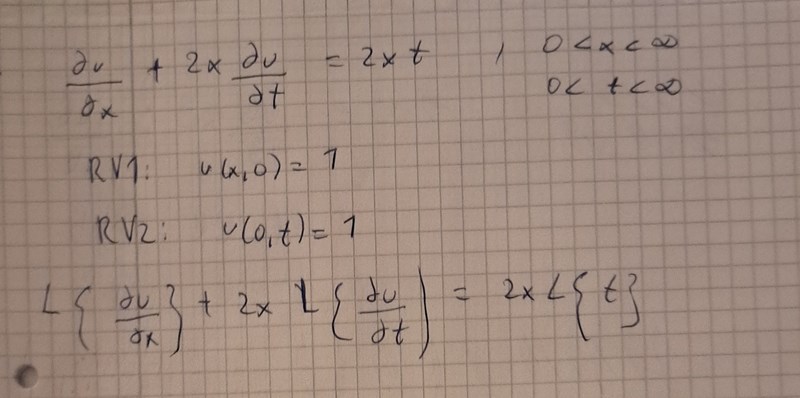 ∂u/∂x + 2x ∂u/∂t = 2xt , 0<x<∞
0< t<∞
RV1: u(x,0)=1
RV2: u(0,t)=1
L{∂u/∂x} + 2x L{∂u/∂t} = 2x L{t}